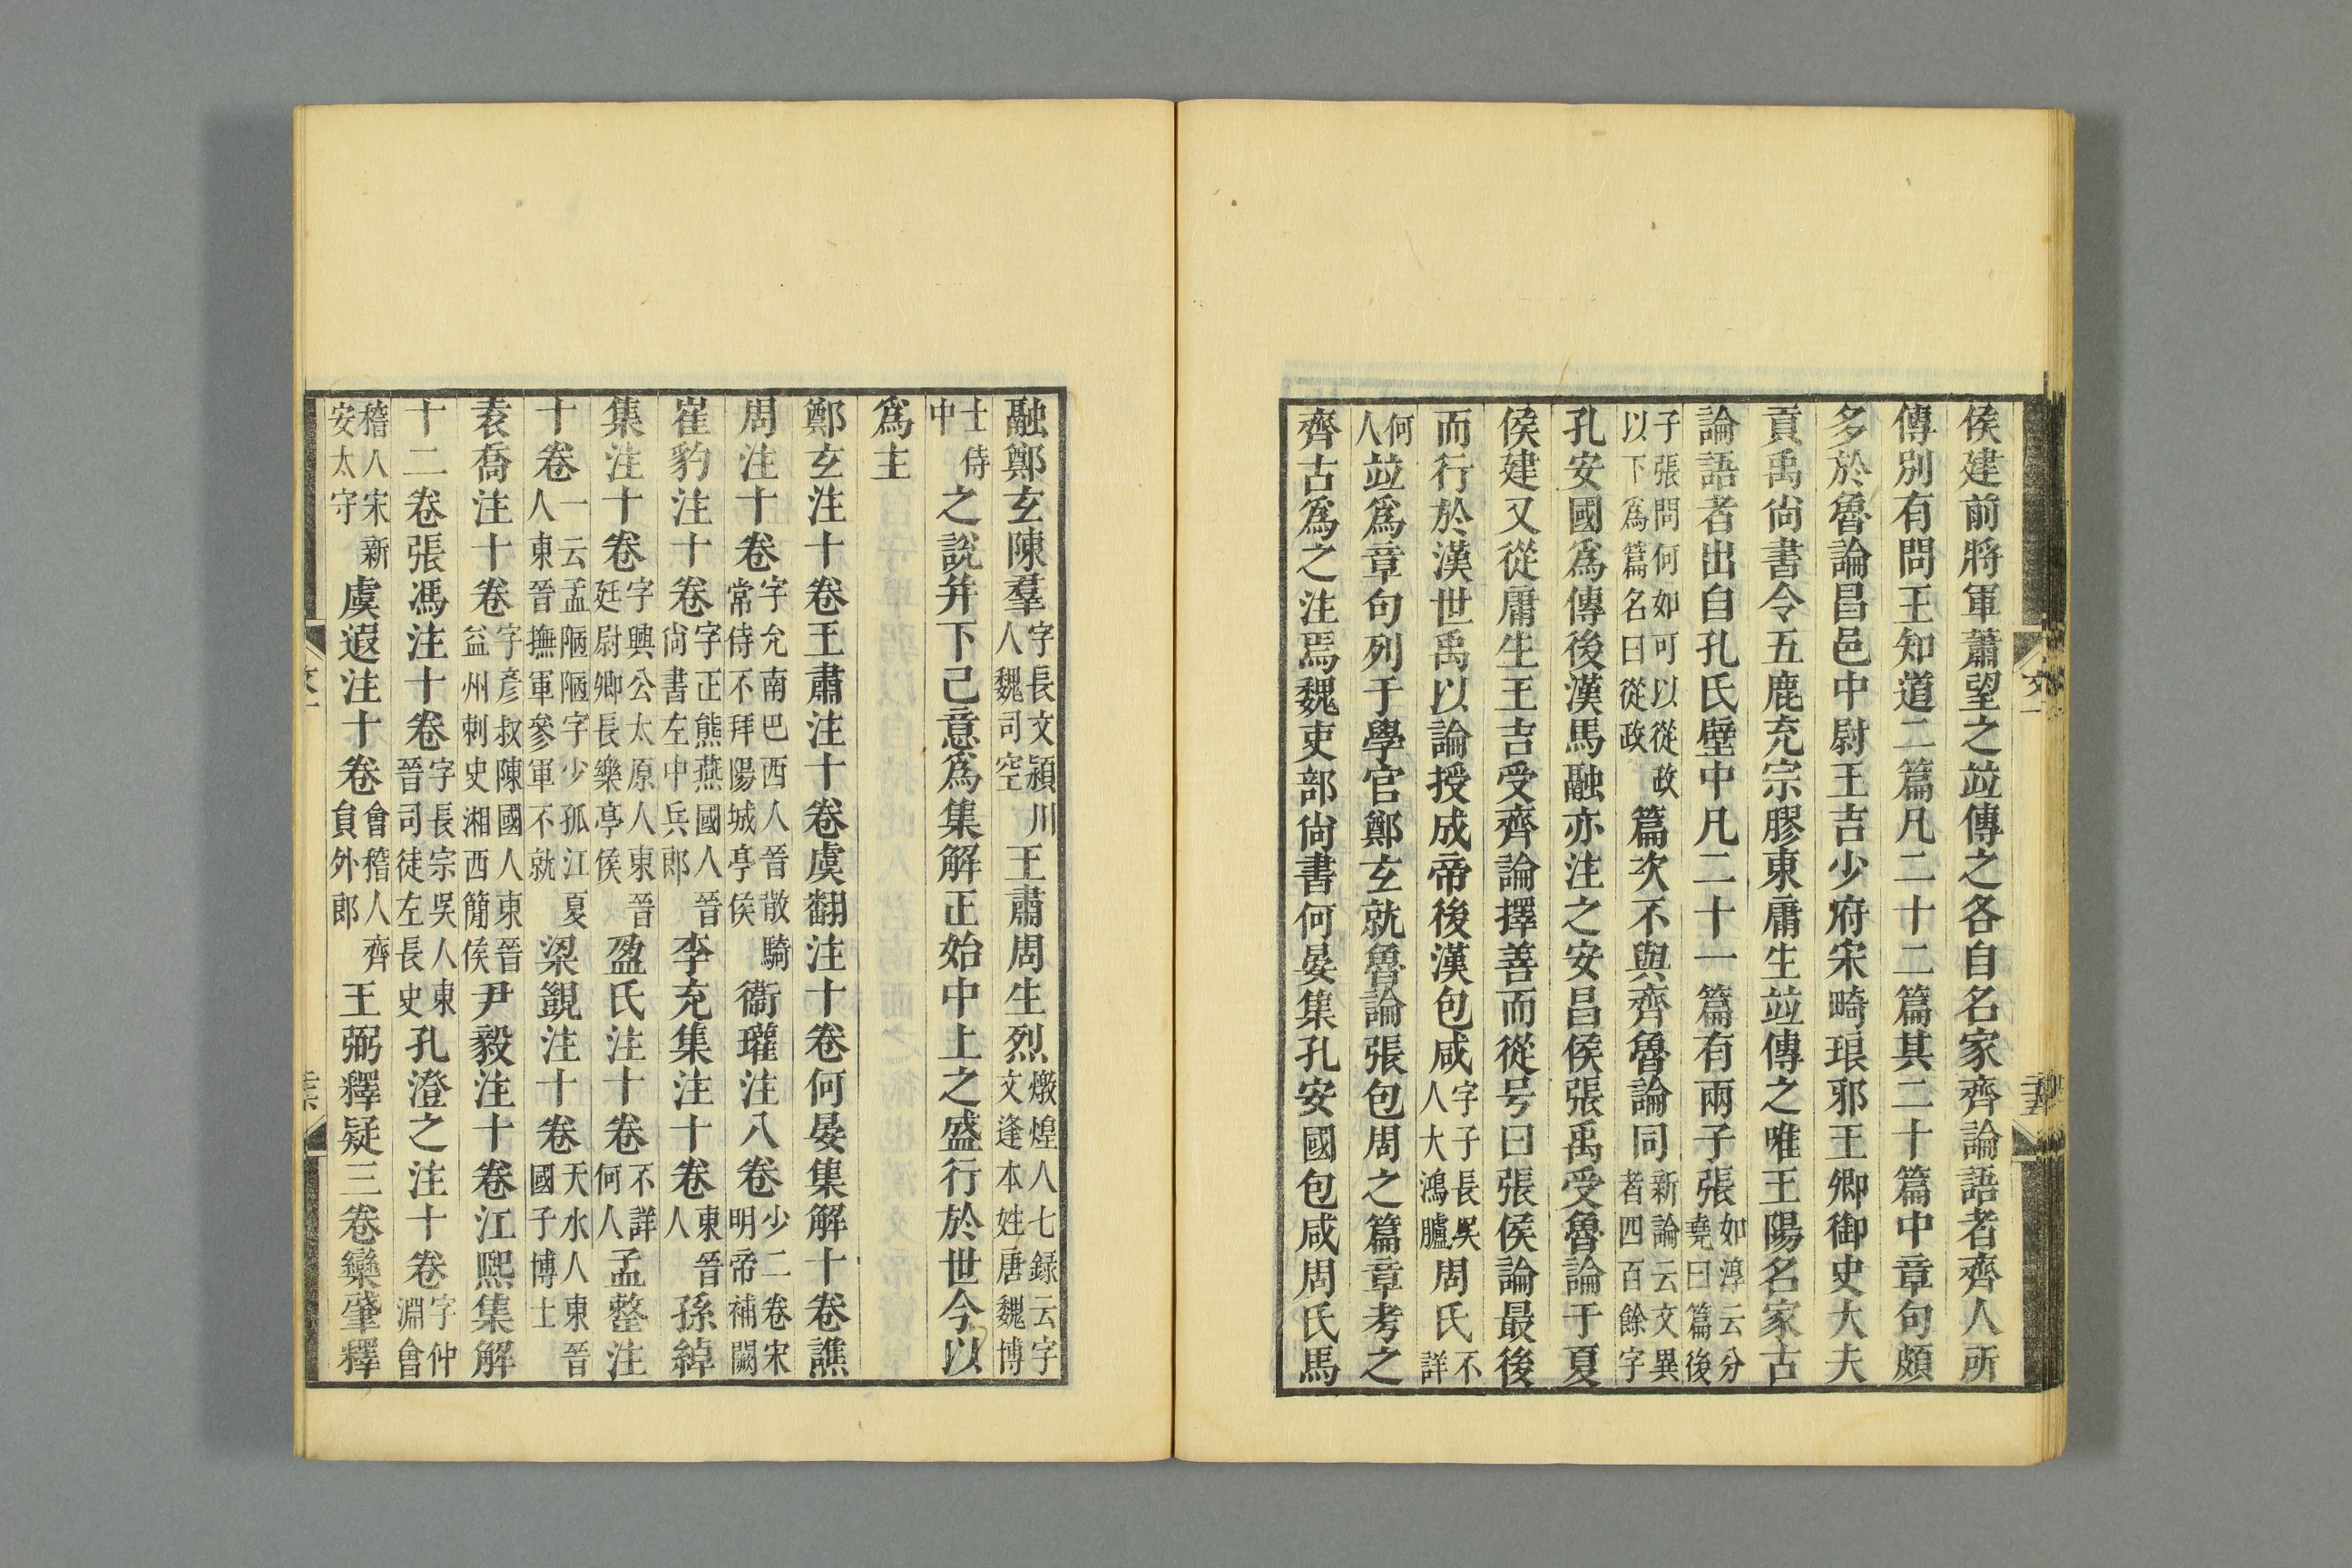 侯建前將軍蕭望之竝傳之各自名家齊論語者齊人所
傳別有問王知道二篇凡二十二篇其二十篇中章句頗
多於魯論昌邑中尉王吉少府宋畸琅邪王卿御史大夫
貢禹尙書令五鹿充宗膠東庸生竝傳之唯王陽名家古
論語者出自孔氏壁中凡二十一篇有兩子張如淳云分堯曰篇後
子張問何如可以從政以下爲篇名曰從政篇次不與齊魯論同新論云文異者四百餘字
孔安國爲傳後漢馬融亦注之安昌侯張禹受魯論于夏
侯建又從庸生王吉受齊論擇善而從号曰張侯論最後
而行於漢世禹以論授成帝後漢包咸字子長吳人大鴻臚周氏不詳
何人竝爲章句列于學官鄭玄就魯論張包周之篇章考之
齊古爲之注焉魏吏部尙書何晏集孔安國包咸周氏馬
融鄭玄陳羣字長文潁川人魏司空王肅周生烈燉煌人七録云字文逢本姓唐魏博
士侍中之說幷下己意爲集解正始中上之盛行於世今以
爲主
鄭玄注十卷王肅注十卷虞翻注十卷何晏集解十卷譙
周注十卷字允南巴西人晉散騎常侍不拜陽城亭侯衞瓘注八卷少二卷宋明帝補闕
崔豹注十卷字正熊燕國人晉尙書左中兵郎李充集注十卷東晉人孫綽
集注十卷字興公太原人東晉廷尉卿長樂亭侯盈氏注十卷不詳何人孟整注
十卷一云孟陋陋字少孤江夏人東晉撫軍參軍不就梁覬注十卷天水人東晉國子博士
袁喬注十卷字彥叔陳國人東晉益州刺史湘西簡侯尹毅注十卷江熙集解
十二卷張馮注十卷字長宗吳人東晉司徒左長史孔澄之注十卷字仲淵會
稽人宋新安太守虞遐注十卷會稽人齊員外郎王弼釋疑三卷欒肇釋